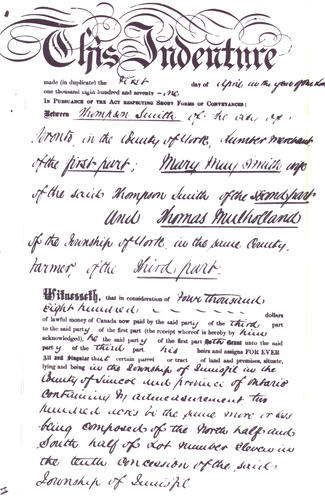 This Indenture
made (in duplicate) the first day of April in the year of our Lord
one thousand eight hundred and seventy-one
IN PURSUANCE OF THE ACT RESPECTING SHORT FORMS OF CONVEYANCES:
Between Thompson Smith of the city of
Toronto, in the County of York, Lumber Merchant
of the first part; Mary May Smith wife
of the said Thompson Smith of the second part
And Thomas Mulholland
of the Township of York, in the same County,
Farmer, of the Third part.
Witnesseth, that in consideration of four thousand
eight hundred dollars
of lawful money of Canada now paid by the said party of the third part
to the said party of the first part (the receipt whereof is hereby by him
acknowledged), he the said party of the first part Doth Grant unto the said
party of the third part his heirs and assigns FOR EVER
All and Singular that certain parcel or tract of land and premises, situate,
lying and being in the Township of Innisfil in the
County of Simcoe and province of Ontario
Containing by admeasurement two
hundred acres be the same more or less
being composed of the North half and
South half of Lot number eleven in
the tenth concession of the said
Township of Innisfil